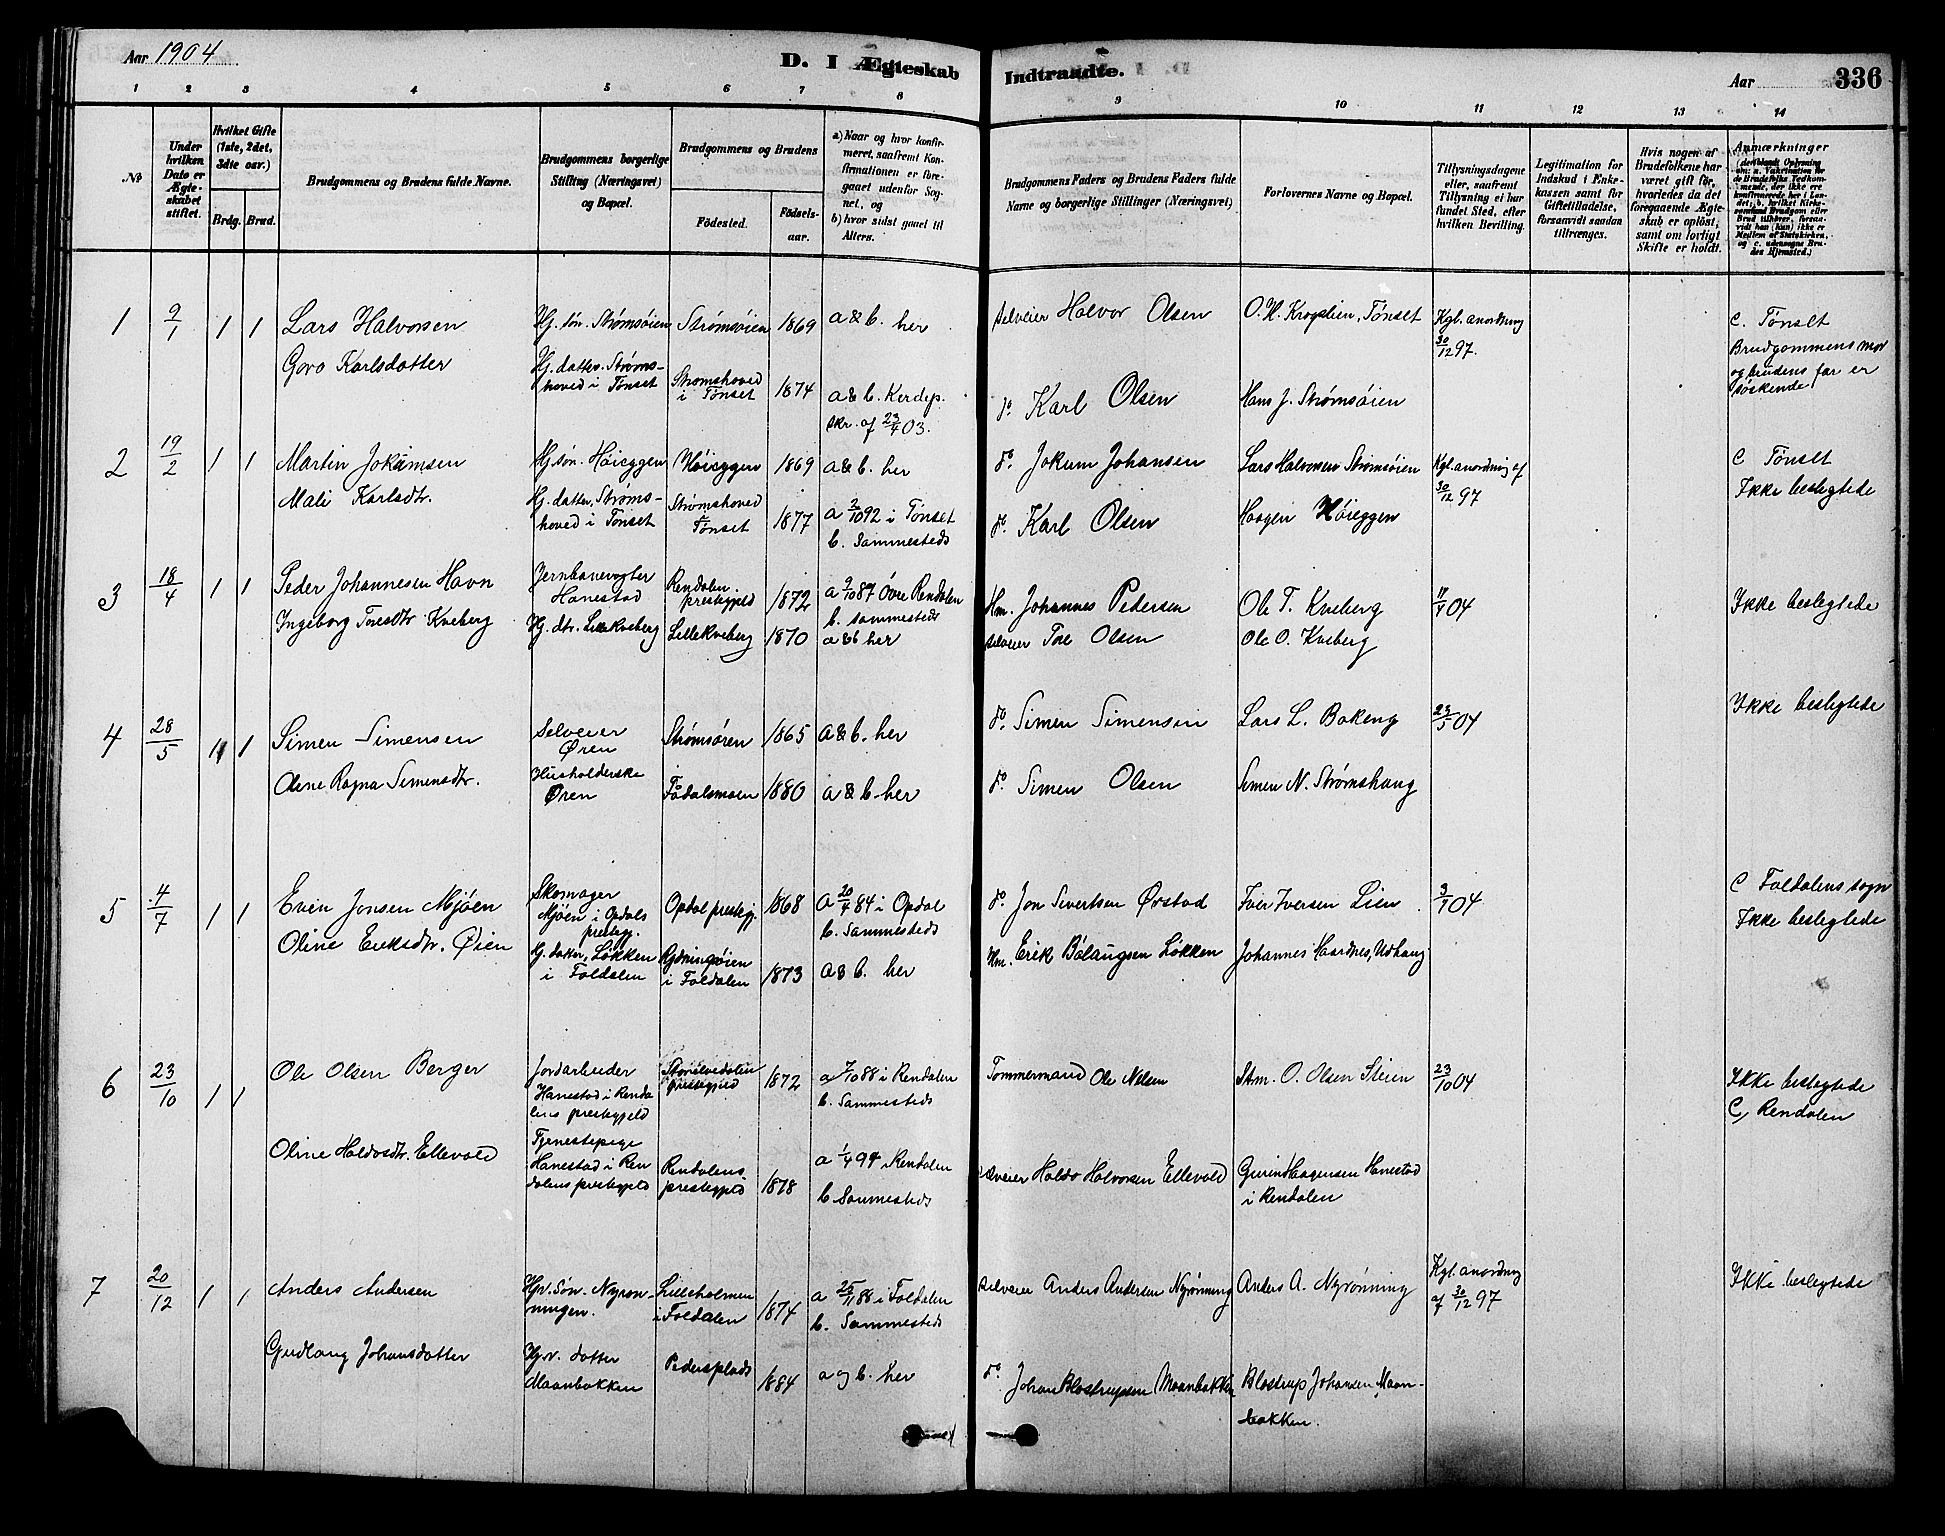 Aar 1904
D. I Ægteskab Indtraadte.
Aar
336
1 2 3 4 5 6 7 8 9 10 11 12 13 14
No
Under hvilken Dato er Ægteskabet stiftet.
Hvilket Gifte (1ste, 2det, 3die osv.)
Brdg. Brud.
Brudgommens og Brudens fulde Navne.
Brudgommens borgerlige Stilling (Næringsvei) og Bopæl.
Brudgommens og Brudens
Fødested.
Fødselsaar.
a) Naar og hvor konfirmeret, saafremt Konfirmationen er foregaaet udenfor Sognet, og
b) hvor sidst gaaet til Alters.
Brudgommens Faders og Brudens Faders fulde Navne og borgerlige Stillinger (Næringsvei)
Forlovernes Navne og Bopæl.
Tillysningsdagene eller, saafremt Tillysning ei har fundet Sted, efter hvilken Bevilling.
Legitimation for Indskud i Enkekassen samt for Giftetilladelse, forsaavidt saadan tiltrænges.
Hvis nogen af Brudefolkene har været gift før, hvorledes da det foregaaende Ægteskab er opløst, samt om lovligt Skifte er holdt.
Anmærkninger
1 9/1 1 1 Lars Halvorsen Hj. søn. Strømsøien Strømsøien 1869 a & b. her Selveier Halvor Olsen O. H. Krogslien, Tønset Kgl. anordning 30/12 97. C. Tønset
Brudgommens mor og brudens far er søskende
Goro Karlsdatter Hj. datter. Strømshoved i Tønset Strømshoved i Tønset 1874 a & b. Kerdep. skr. af 23/4 03. do Karl Olsen Hans J. Strømsøien
2 19/2 1 1 Martin Jokumsen Hj. søn. Høieggen Høieggen 1869 a & b. her do. Jokum Johansen Lars Halvorsen Strømsøien Kgl. anordning af 30/12 97 C Tønset
Ikke beslegtede
Mali Karlsdtr. Hj. datter, Strømshoved i Tønset Strømshoved Tønset 1877 a 2/10 92 i Tønset b. Sammesteds do. Karl Olsen Haagen Høieggen
3 18/4 1 1 Peder Johannesen Havn Jernbanevogter Hanestad Rendalen prestegjeld 1872 a 9/10 87 Øvre Rendalen b. sammesteds Hm. Johannes Pedersen Ole T. Kveberg 4/4 04 Ikke beslegtede
Ingeborg Toresdtr. Kveberg Hj. dtr. Lillekveberg Lillekveberg 1870 a & b her Selveier Tore Olsen Ole O. Kveberg
4 28/5 1 1 Simen Simensen Selveier Øren Strømsøren 1865 a & b. her do. Simen Simensen Lars L. Bakeng 23/5 04 Ikke beslegtede
Oline Ragna Simensdtr. Husholderske Øren Fådalsmoen 1880 a & b her do. Simen Olsen Simen N. Strømshaug
5 4/7 1 1 Even Jonsen Mjøen Skomager Mjøen i Opdals prestegj. Opdal prestegj. 1868 a 20/4 84 i Opdal b. Sammesteds do. Jon Sivertsen Ørstad Iver Iversen Lien 3/1 04 C Foldalens sogn
Ikke beslegtede
Oline Eriksdtr. Øien Hj. datter, Løkken i Foldalen Rydningsøien i Foldalen 1873 a & b. her Hm. Erik Bålaugsen Løkken Johannes Haardnes, Udhaug
6 23/10 1 1 Ole Olsen Berger Jordarbeider Hanestad i Rendalens prestegjeld Storelvedalen prestegjeld 1872 a 7/10 88 i Rendalen b. Sammesteds Tømmermand Ole Nilsen Stm. O. Olsen Steien 23/10 04 Ikke beslegtede
C, Rendalen
Oline Haldosdtr. Ellevold Tjenestepige Hanestad i Rendalens prestegjeld Rendalens prestegjeld 1878 a 1/4 94 i Rendalen b Sammesteds Selveier Haldo Halvorsen Ellevold Haagensen Hanestad i Rendalen
7 20/12 1 1 Anders Andersen Hjv. Søn. Nyrønningen. Lilleholmen i Foldalen 1874 a 25/11 88 i Foldalen b. Sammesteds Selveier Anders Andersen Nyrønning Anders A. Nyrønning Kgl. anordning af 30/12 97 Ikke beslegtede
Gudlaug Johansdatter Hjv. datter Maanbakken Pedersplads 1884 a og b. her do. Johan Blostrupsen Maanbakken Blostrup Johansen Maanbakken.